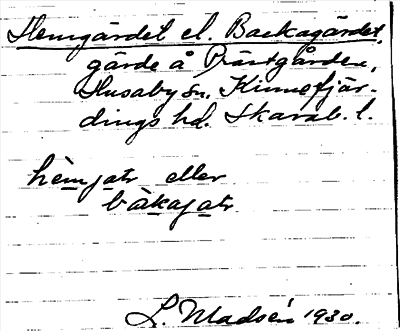 Hemgärdet el. Backagärdet,
gärde å Prästgården,
Husaby sn, Kinnefjär-
dings hd. Skarab. l.
hèmjatr eller
bàkajatr
L. Madsén 1930.